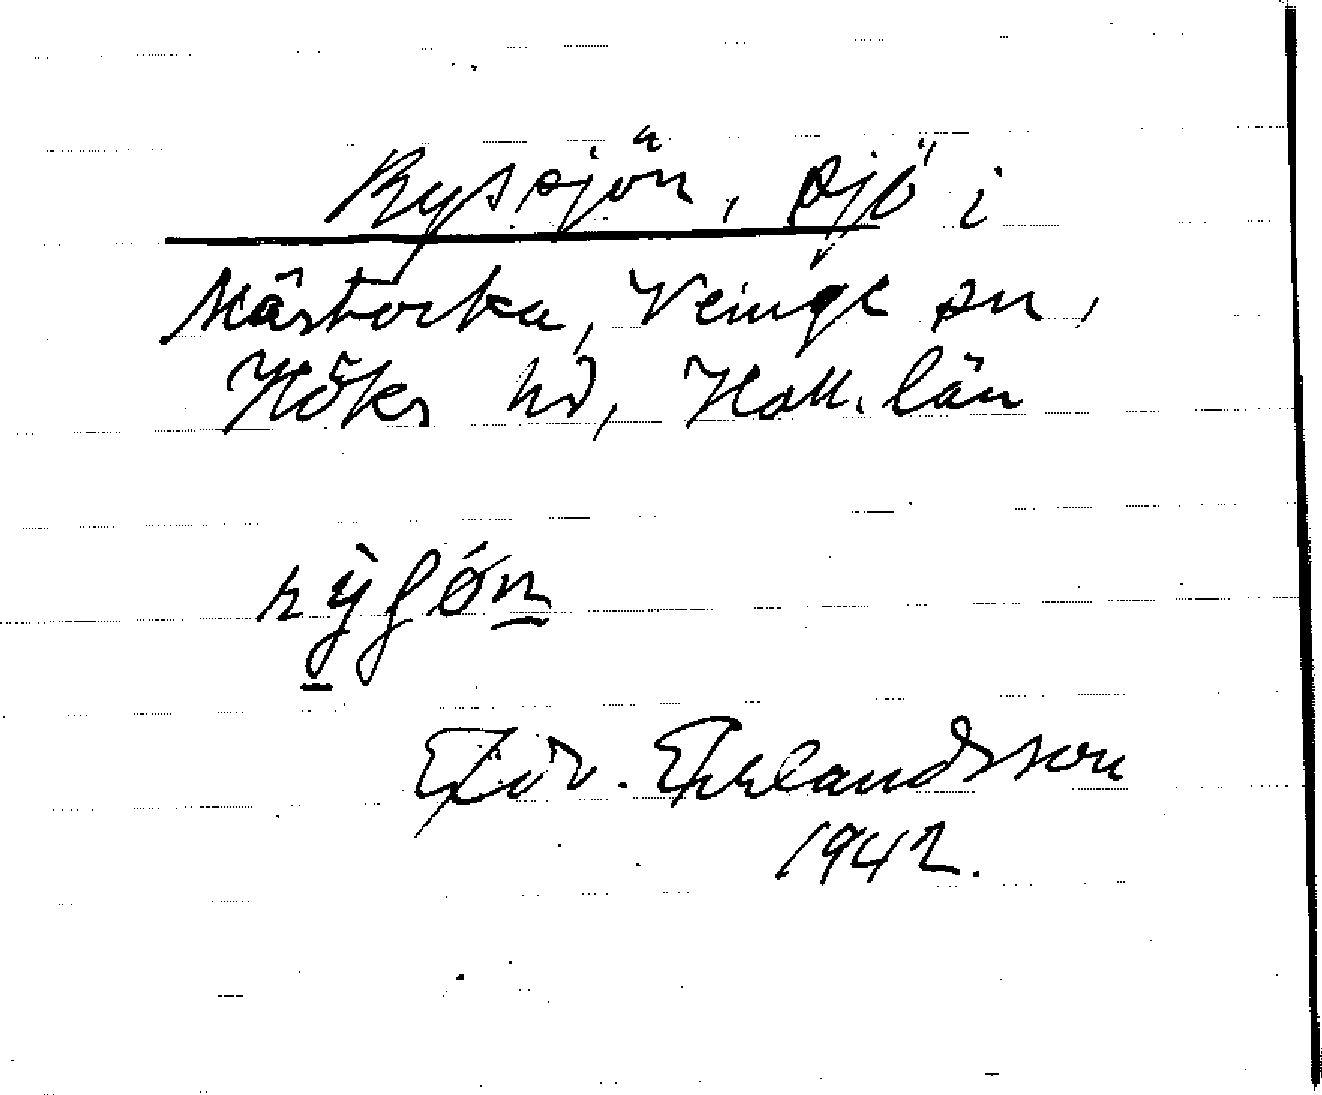 Ryssjön, sjö i
Mästocka, Veinge sn,
Höks hd, Hall. län
rỳʃón
Edv. Erlandsson
1942.